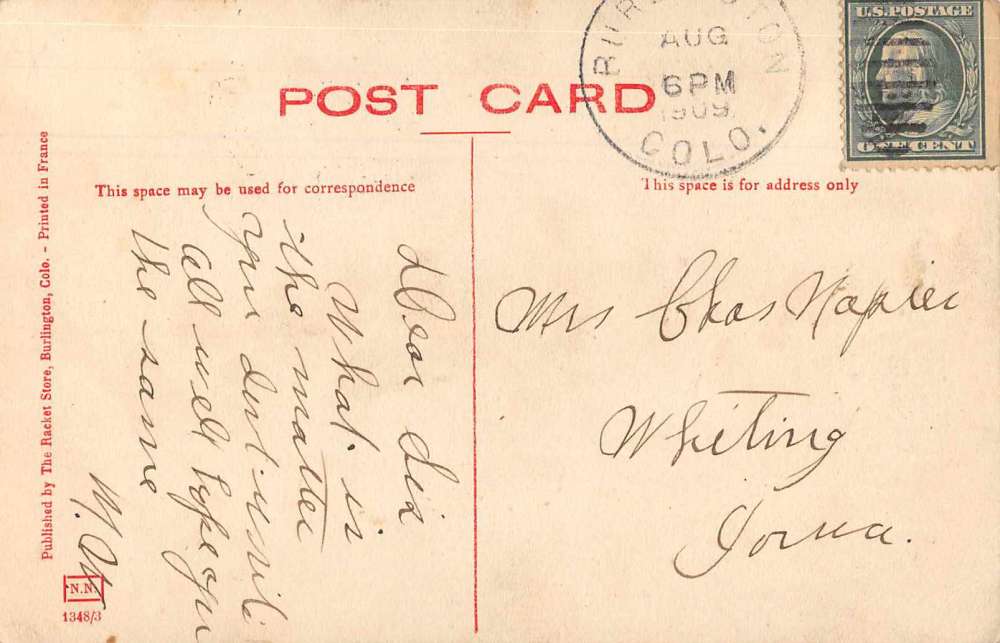 POST CARD
BURLINGTON
AUG
6PM
1909
COLO.
U.S.POSTAGE
ONE CENT
This space may be used for correspondence
This space is for address only
Dear Sis
What is
the matter
you dont write
all well hope you
the same
Mrs Chas Napier
Whiting
Iowa.
Published by The Racket Store, Burlington, Colo. - Printed in France
N.N.
1348/3